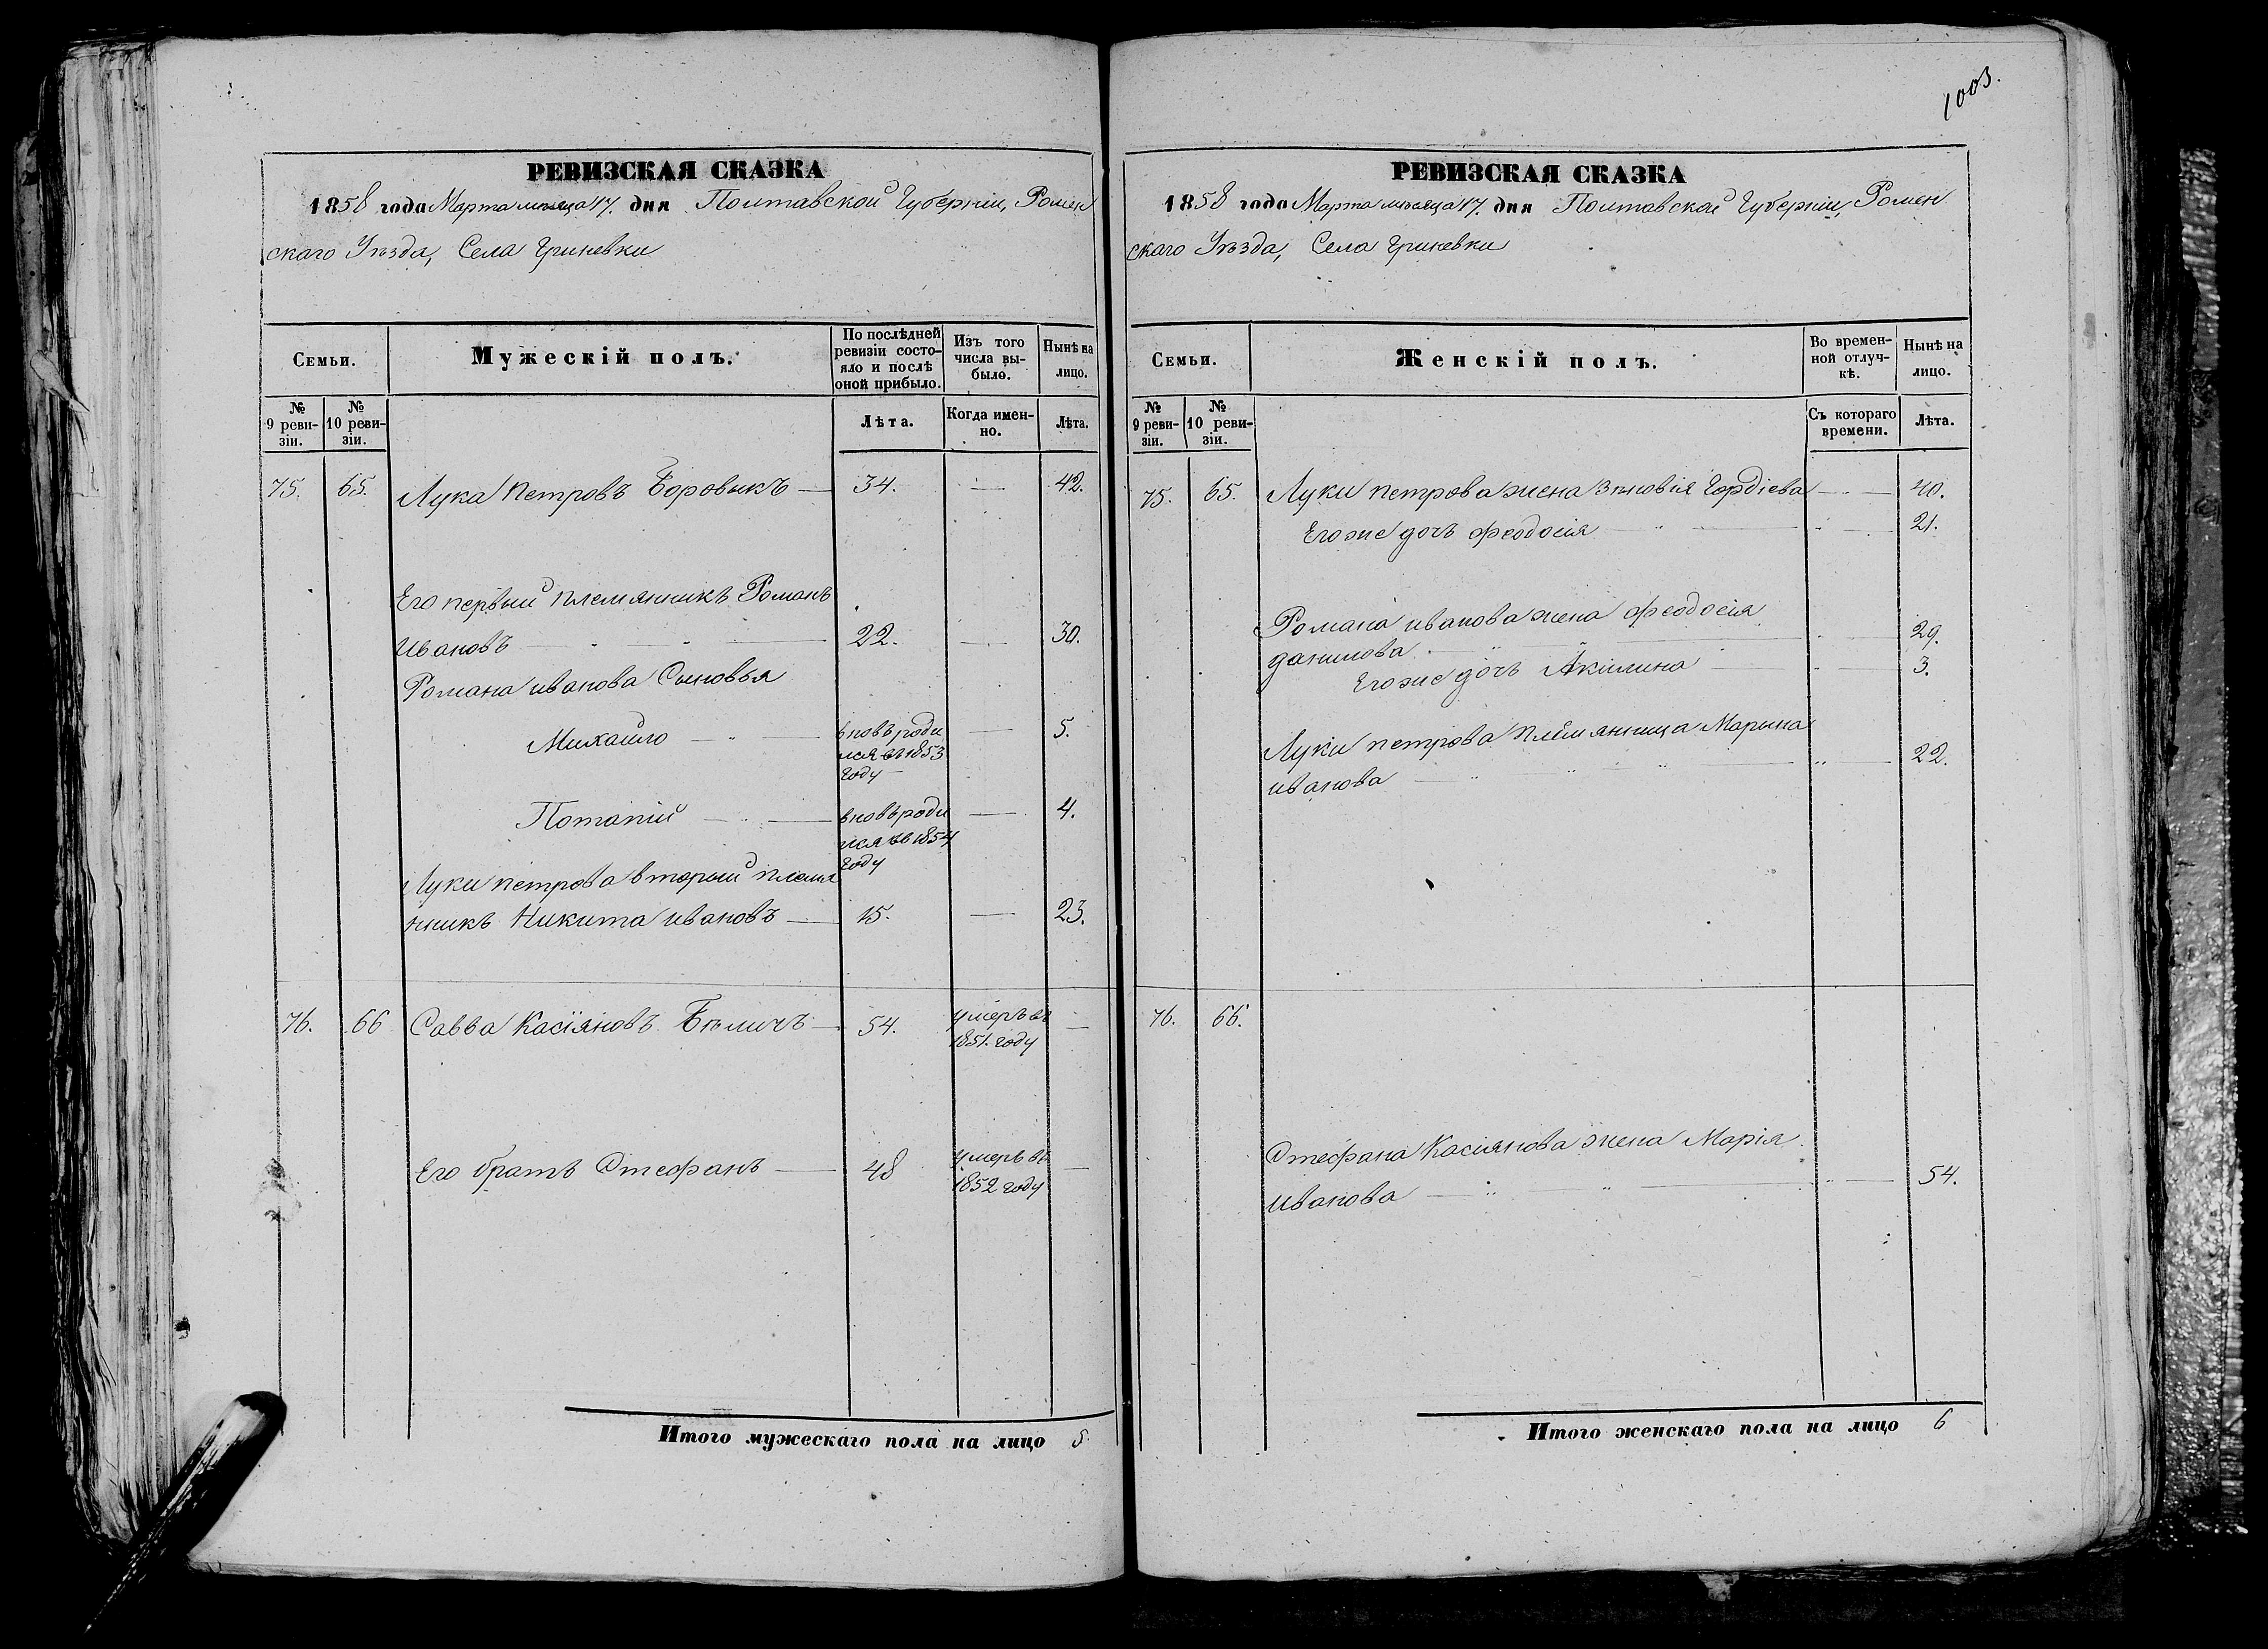 РЕВИЗСКАЯ СКАЗКА
1858 года Марта мѣсяца 17. дня Полтавской Губерніи, Ромен
скаго Уѣзда, Села Гриневки
Семьи.
Мужескій полъ.
По послѣдней ревизіи состо-
яло и послѣ оной прибыло.
Изъ того числа вы-
было.
Нынѣ на лицо.
№ 9 реви-
зіи.
№ 10 реви-
зіи.
Лѣта.
Когда имен-
но.
Лѣта.
75. 65. Лука Петровъ Боровыкъ — 34. — 42.
Его первый племянникъ Романъ
Ивановъ — 22. — 30.
Романа иванова Сыновья
Михайло — вновь роди — 5.
лся въ 1853
году
Потапій — вновь роди — 4.
лся въ 1854
году
Луки петрова вторый племя
нникъ Никита ивановъ — 15. — 23.
76. 66 Савва Касіяновъ Бѣличъ — 54. умеръ въ —
1851. году
Его братъ Стефанъ — 48 умеръ въ —
1852 году
Итого мужескаго пола на лицо 5.
1003.
РЕВИЗСКАЯ СКАЗКА
1858 года Марта мѣсяца 17. дня Полтавской Губерніи, Ромен
скаго Уѣзда, Села Гриневки
Семьи.
Женскій полъ.
Во времен-
ной отлуч-
кѣ.
Нынѣ на лицо.
№ 9 реви-
зіи.
№ 10 реви-
зіи.
Съ котораго времени.
Лѣта.
75. 65. Луки петрова жена Зѣновія Гордіева — 40.
Его же дочь Феодосія — 21.
Романа иванова жена Феодосія
данилова — 29.
Его же дочь Акилина — 3.
Луки петрова племянница Марына
иванова — 22.
76. 66.
Стефана Касіянова жена Марія
иванова — 54.
Итого женскаго пола на лицо 6